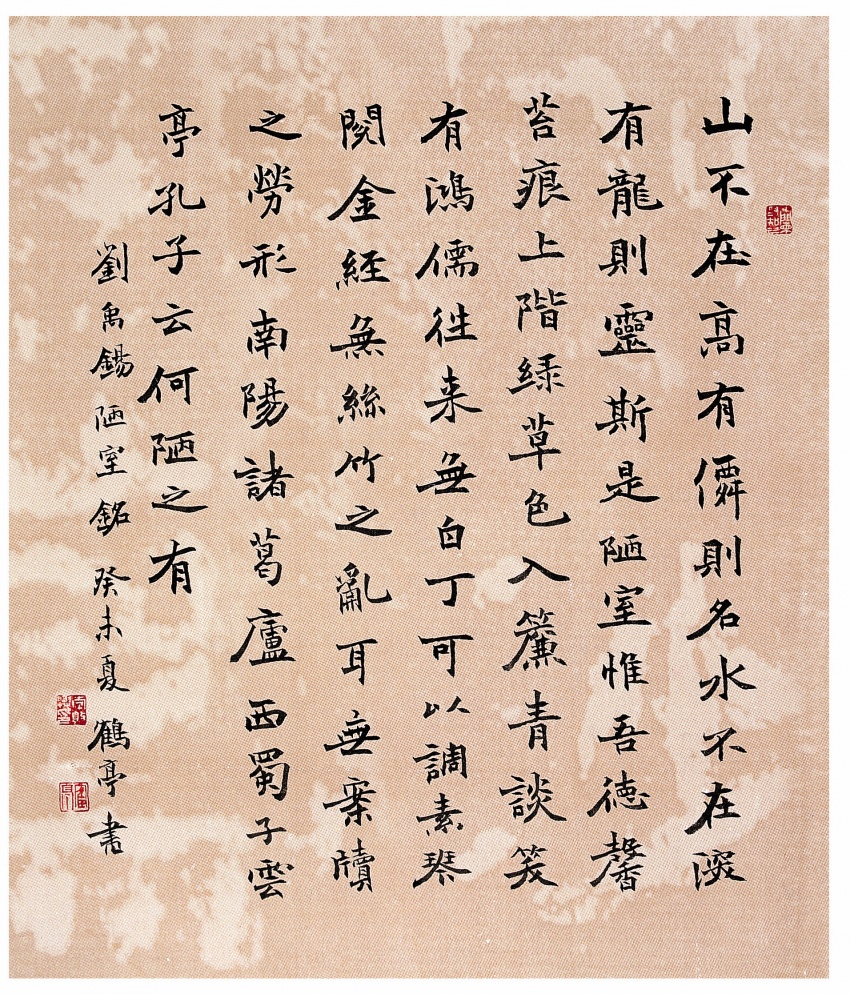 山不在高有僊則名水不在深
有龍則靈斯是陋室惟吾德馨
苔痕上階緑草色入簾青談笑
有鴻儒往来無白丁可以調素琴
閱金經無絲竹之亂耳無案牘
之勞形南陽諸葛廬西蜀子雲
亭孔子云何陋之有
劉禹錫陋室銘癸未夏鶴亭書